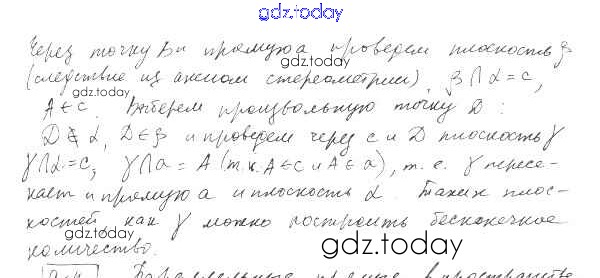 gdz.today
Через точку B и прямую a проведем плоскость β
(следствие из аксиом стереометрии), β ∩ α = c,
gdz.today
gdz.today
A ∈ c. Выберем произвольную точку D:
D ∉ α, D ∉ β и проведем через c и D плоскость γ
γ ∩ α = c, γ ∩ a = A (т.к. A ∈ c и A ∈ a), т.е. γ пересе-
кает и прямую a и плоскость α. Таких плос-
костей как γ можно построить бесконечное
gdz.today
количество.
gdz.today
Параллельные прямые в пространстве